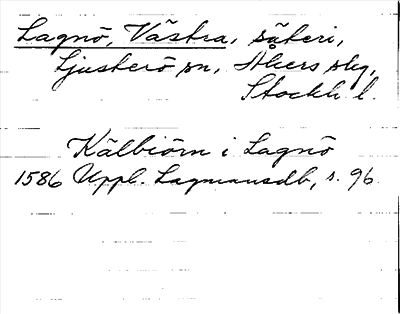 Lagnö, Västra, säteri,
Ljusterö sn, Åkers skg,
Stockh. l.
Kälbiörn i Lagnö
1586 Uppl. Lagmansdb, s. 96